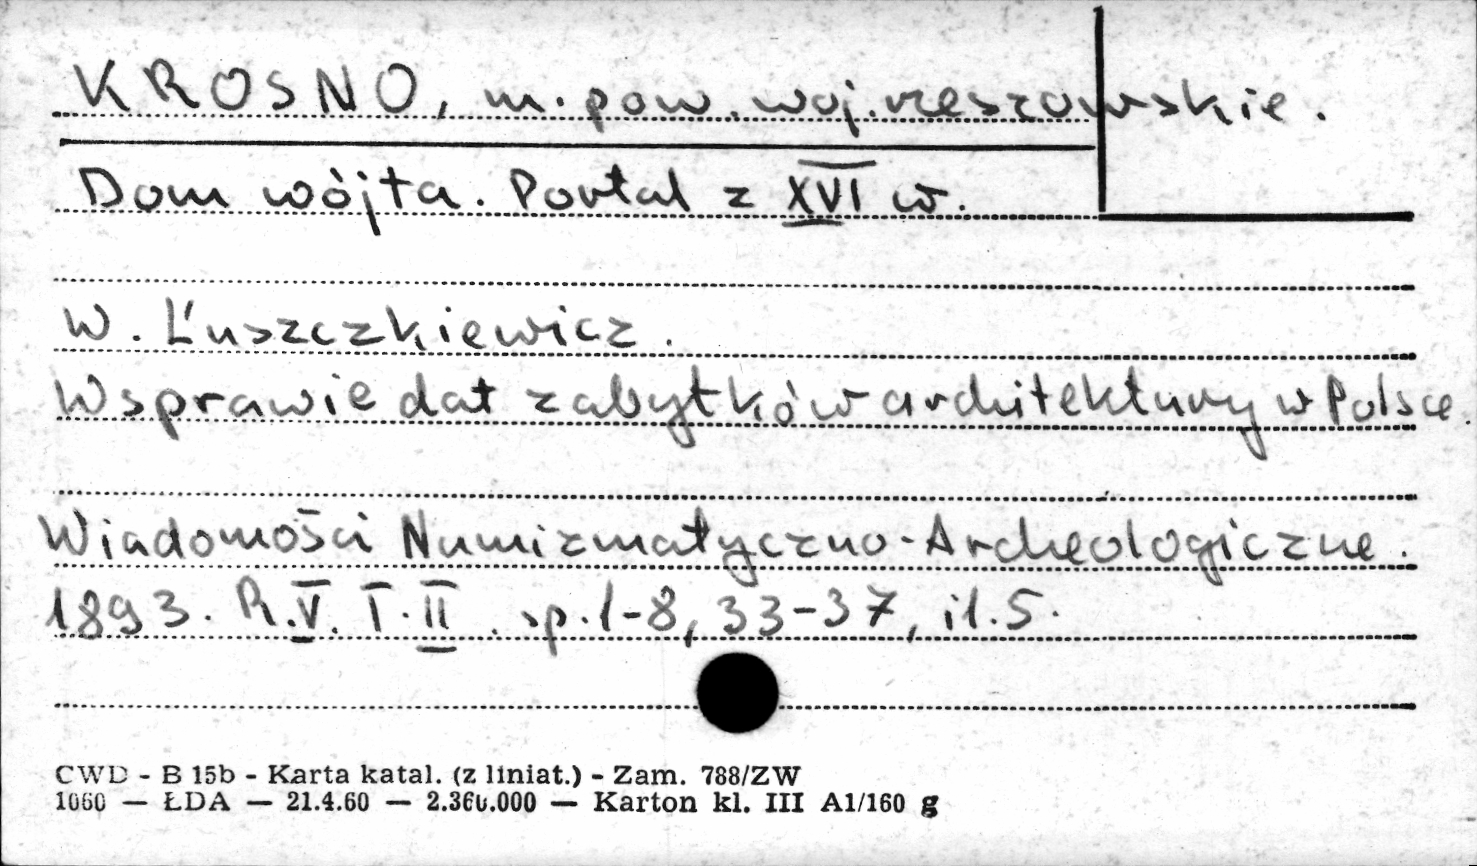 KROSNO, m. pow. woj. rzeszowskie.
Dom wójta. Portal z XVI w.
W. Łuszczkiewicz.
W sprawie dat zabytków architektury w Polsce.
Wiadomości Numizmatyczno-Archeologiczne.
1893. R.V. T.II. sp. 1-8, 33-37, il. 5.
CWD - B 15b - Karta katal. (z liniat.) - Zam. 788/ZW
1060 — ŁDA — 21.4.60 — 2.360.000 — Karton kl. III A1/160 g